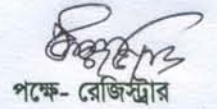 পক্ষে- রেজিস্ট্রার